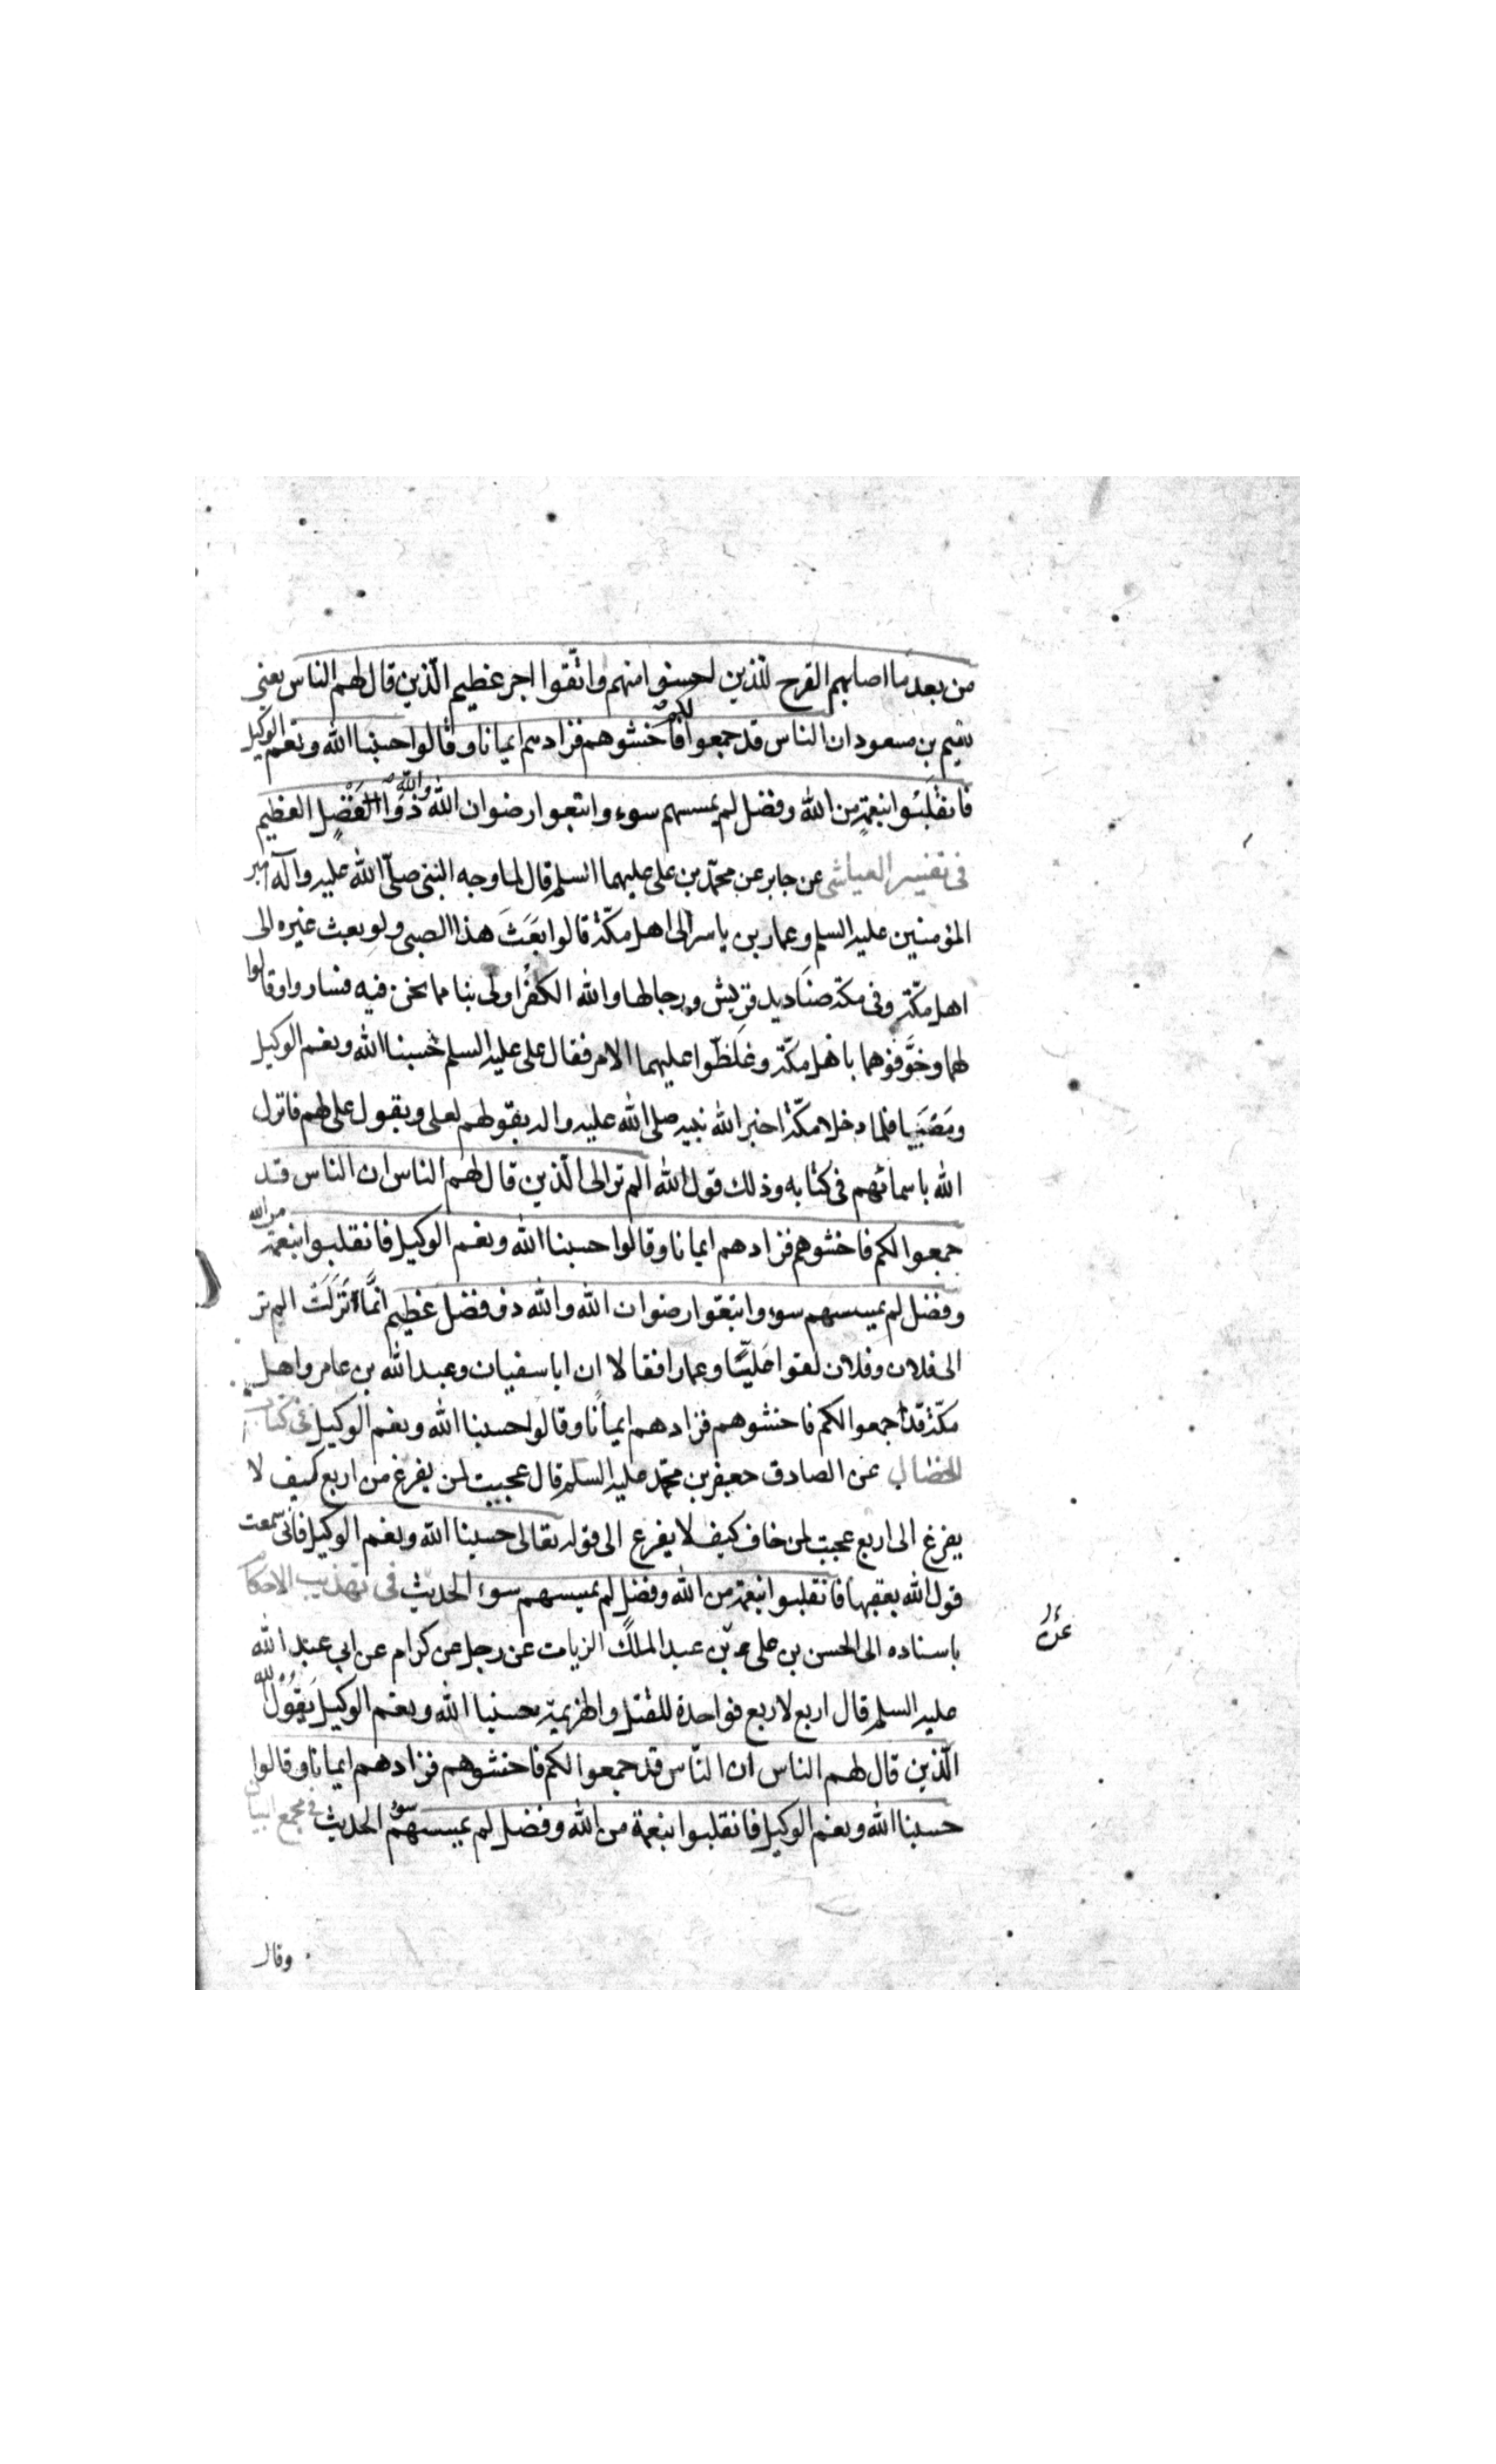 من بعد ما اصابهم القرح للذين احسنوا منهم واتّقوا اجر عظيم الّذين قال لهم الناس يعنى
نعيم بن مسعود ان الناس قد جمعوا لكم فاخشوهم فزادهم ايمانا وقالوا حسبنا الله ونعم الوكيل
فانقلبوا بنعمة من الله وفضل لم يمسسهم سوء واتبعوا رضوان الله والله ذو الفضل العظيم
فى تفسير العياشى عن جابر عن محمّد بن على عليهما السلم قال لما وجه النبى صلّى الله عليه وآله امير
المؤمنين عليه السلم وعمار بن ياسر الى اهل مكّة قالوا بَعَثَ هذا الصبى ولو بعث غيره الى
اهل مكّة وفى مكة صناديد قريش ورجالها والله الكفر اولى بنا مما نحن فيه فساروا وقالوا
لهما وخوّفوهما باهل مكّة وغلظّوا عليهما الامر فقال على عليه السلم حسبنا الله ونعم الوكيل
ومضيا فلما دخلا مكّة اخبر الله نبيه صلى الله عليه واله بقولهم لعلى وبقول على لهم فانزل
الله باسمائهم فى كتابه وذلك قول الله الم تر الى الّذين قال لهم الناس ان الناس قد
جمعوا لكم فاخشوهم فزادهم ايمانا وقالوا حسبنا الله ونعم الوكيل فانقلبوا بنعمة من الله
وفضل لم يمسسهم سوء واتبعوا رضوان الله والله ذو فضل عظيم انّما نزلت الم تر
الى فلان وفلان لقوا عليّا وعمارا فقالا ان ابا سفيان وعبد الله بن عامر واهل
مكّة قد اجمعوا لكم فاخشوهم فزادهم ايمانا وقالوا حسبنا الله ونعم الوكيل فى كتاب
الخصال عن الصادق جعفر بن محمّد عليه السلم قال عجبت لمن يفزع من اربع كيف لا
يفزع الى اربع عجبت لمن خاف كيف لا يفزع الى قوله تعالى حسبنا الله ونعم الوكيل فانى سمعت
قول الله يعقبها فانقلبوا بنعمة من الله وفضل لم يمسسهم سوء الحديث فى تهذيب الاحكام
باسناده الى الحسن بن على بن عبد الملك الزيات عن رجل عن كرام عن ابى عبد الله
عليه السلم قال اربع لاربع فواحدة للقتل والهزيمة حسبنا الله ونعم الوكيل يقول الله
الّذين قال لهم الناس ان النّاس قد جمعوا لكم فاخشوهم فزادهم ايمانا وقالوا
حسبنا الله ونعم الوكيل فانقلبوا بنعمة من الله وفضل لم يمسسهم سوء الحديث فى مجمع البيان
وقال